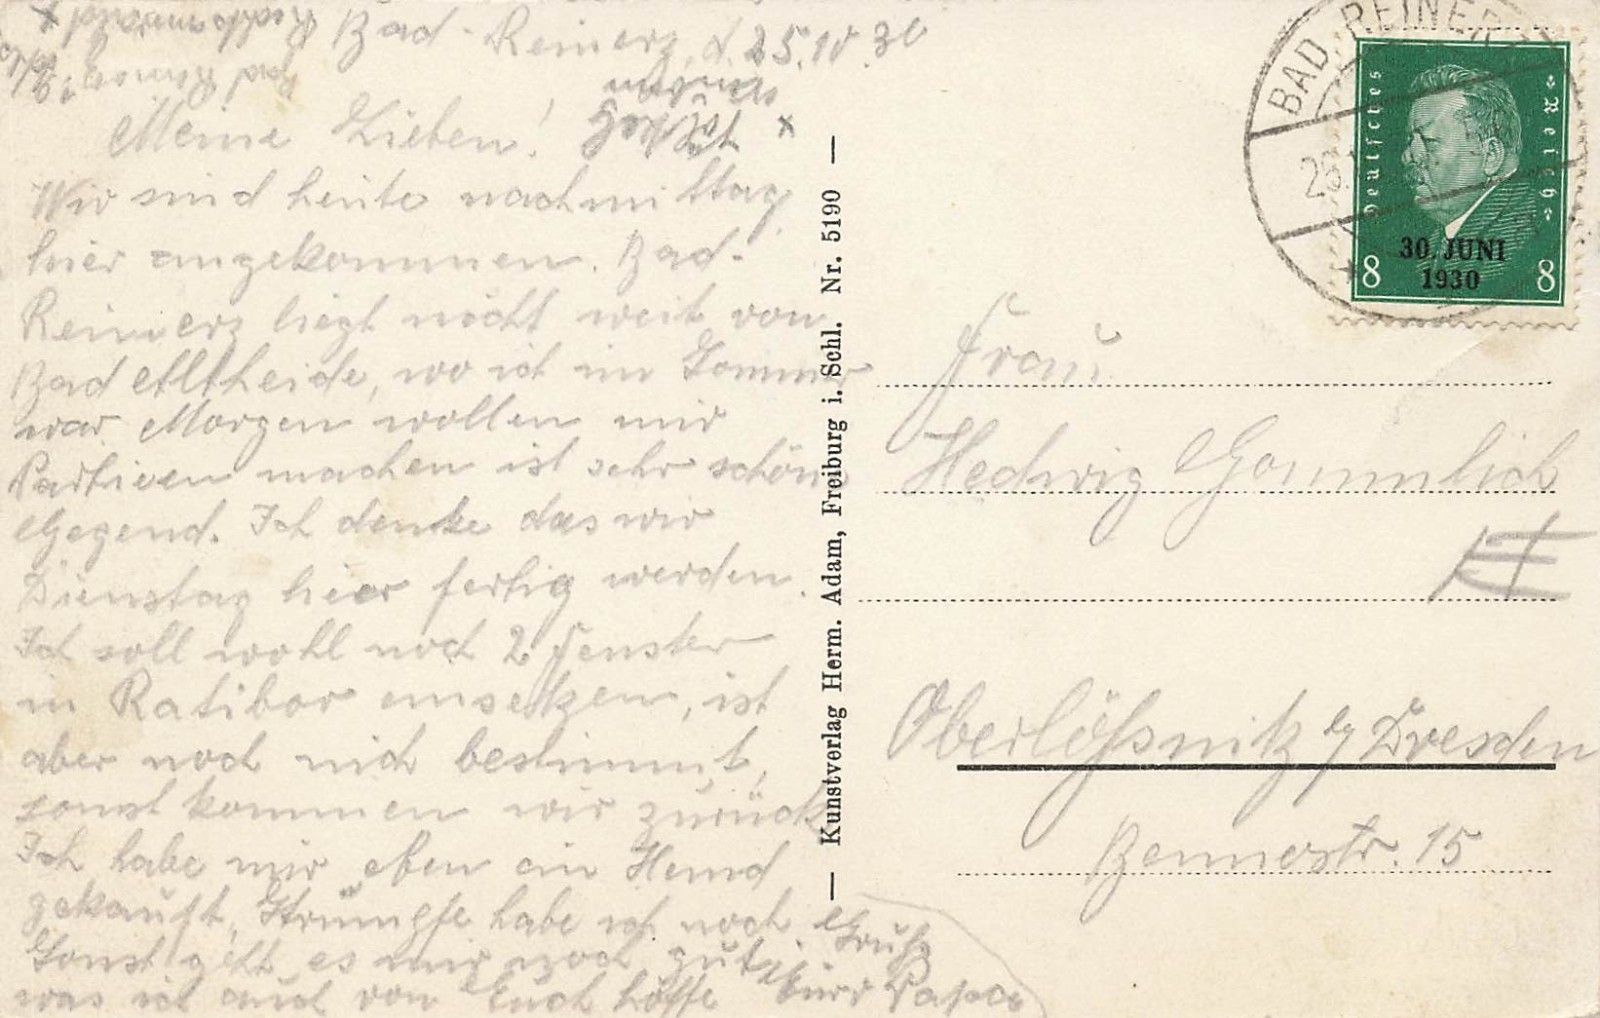 Bad-Reinerz, d. 25.10.30
Meine Lieben!
Wir sind heute nachmittag
hier angekommen. Bad-
Reinerz liegt nicht weit von
Bad Altheide, wo ich im Sommer
war Morgen wollen wir
Partieen machen ist sehr schöne
Gegend. Ich denke das wir
Dienstag hier fertig werden.
Ich soll wohl noch 2 Fenster
in Ratibor einsetzen, ist
aber noch nich bestimmt,
sonst kommen wir zurück
Ich habe mir eben ein Hemd
gekauft, Strümpfe habe ich noch
Sonst geht es mir noch gut,
was ich auch von Euch hoffe
Gruß
Euer Papa
Kunstverlag Herm. Adam, Freiburg i. Schl. Nr. 5190
BAD REINERZ
Deutsches Reich
30. JUNI
1930
8 8
Frau
Hedwig Gommlich
Oberlößnitz b/ Dresden
Bennostr. 15